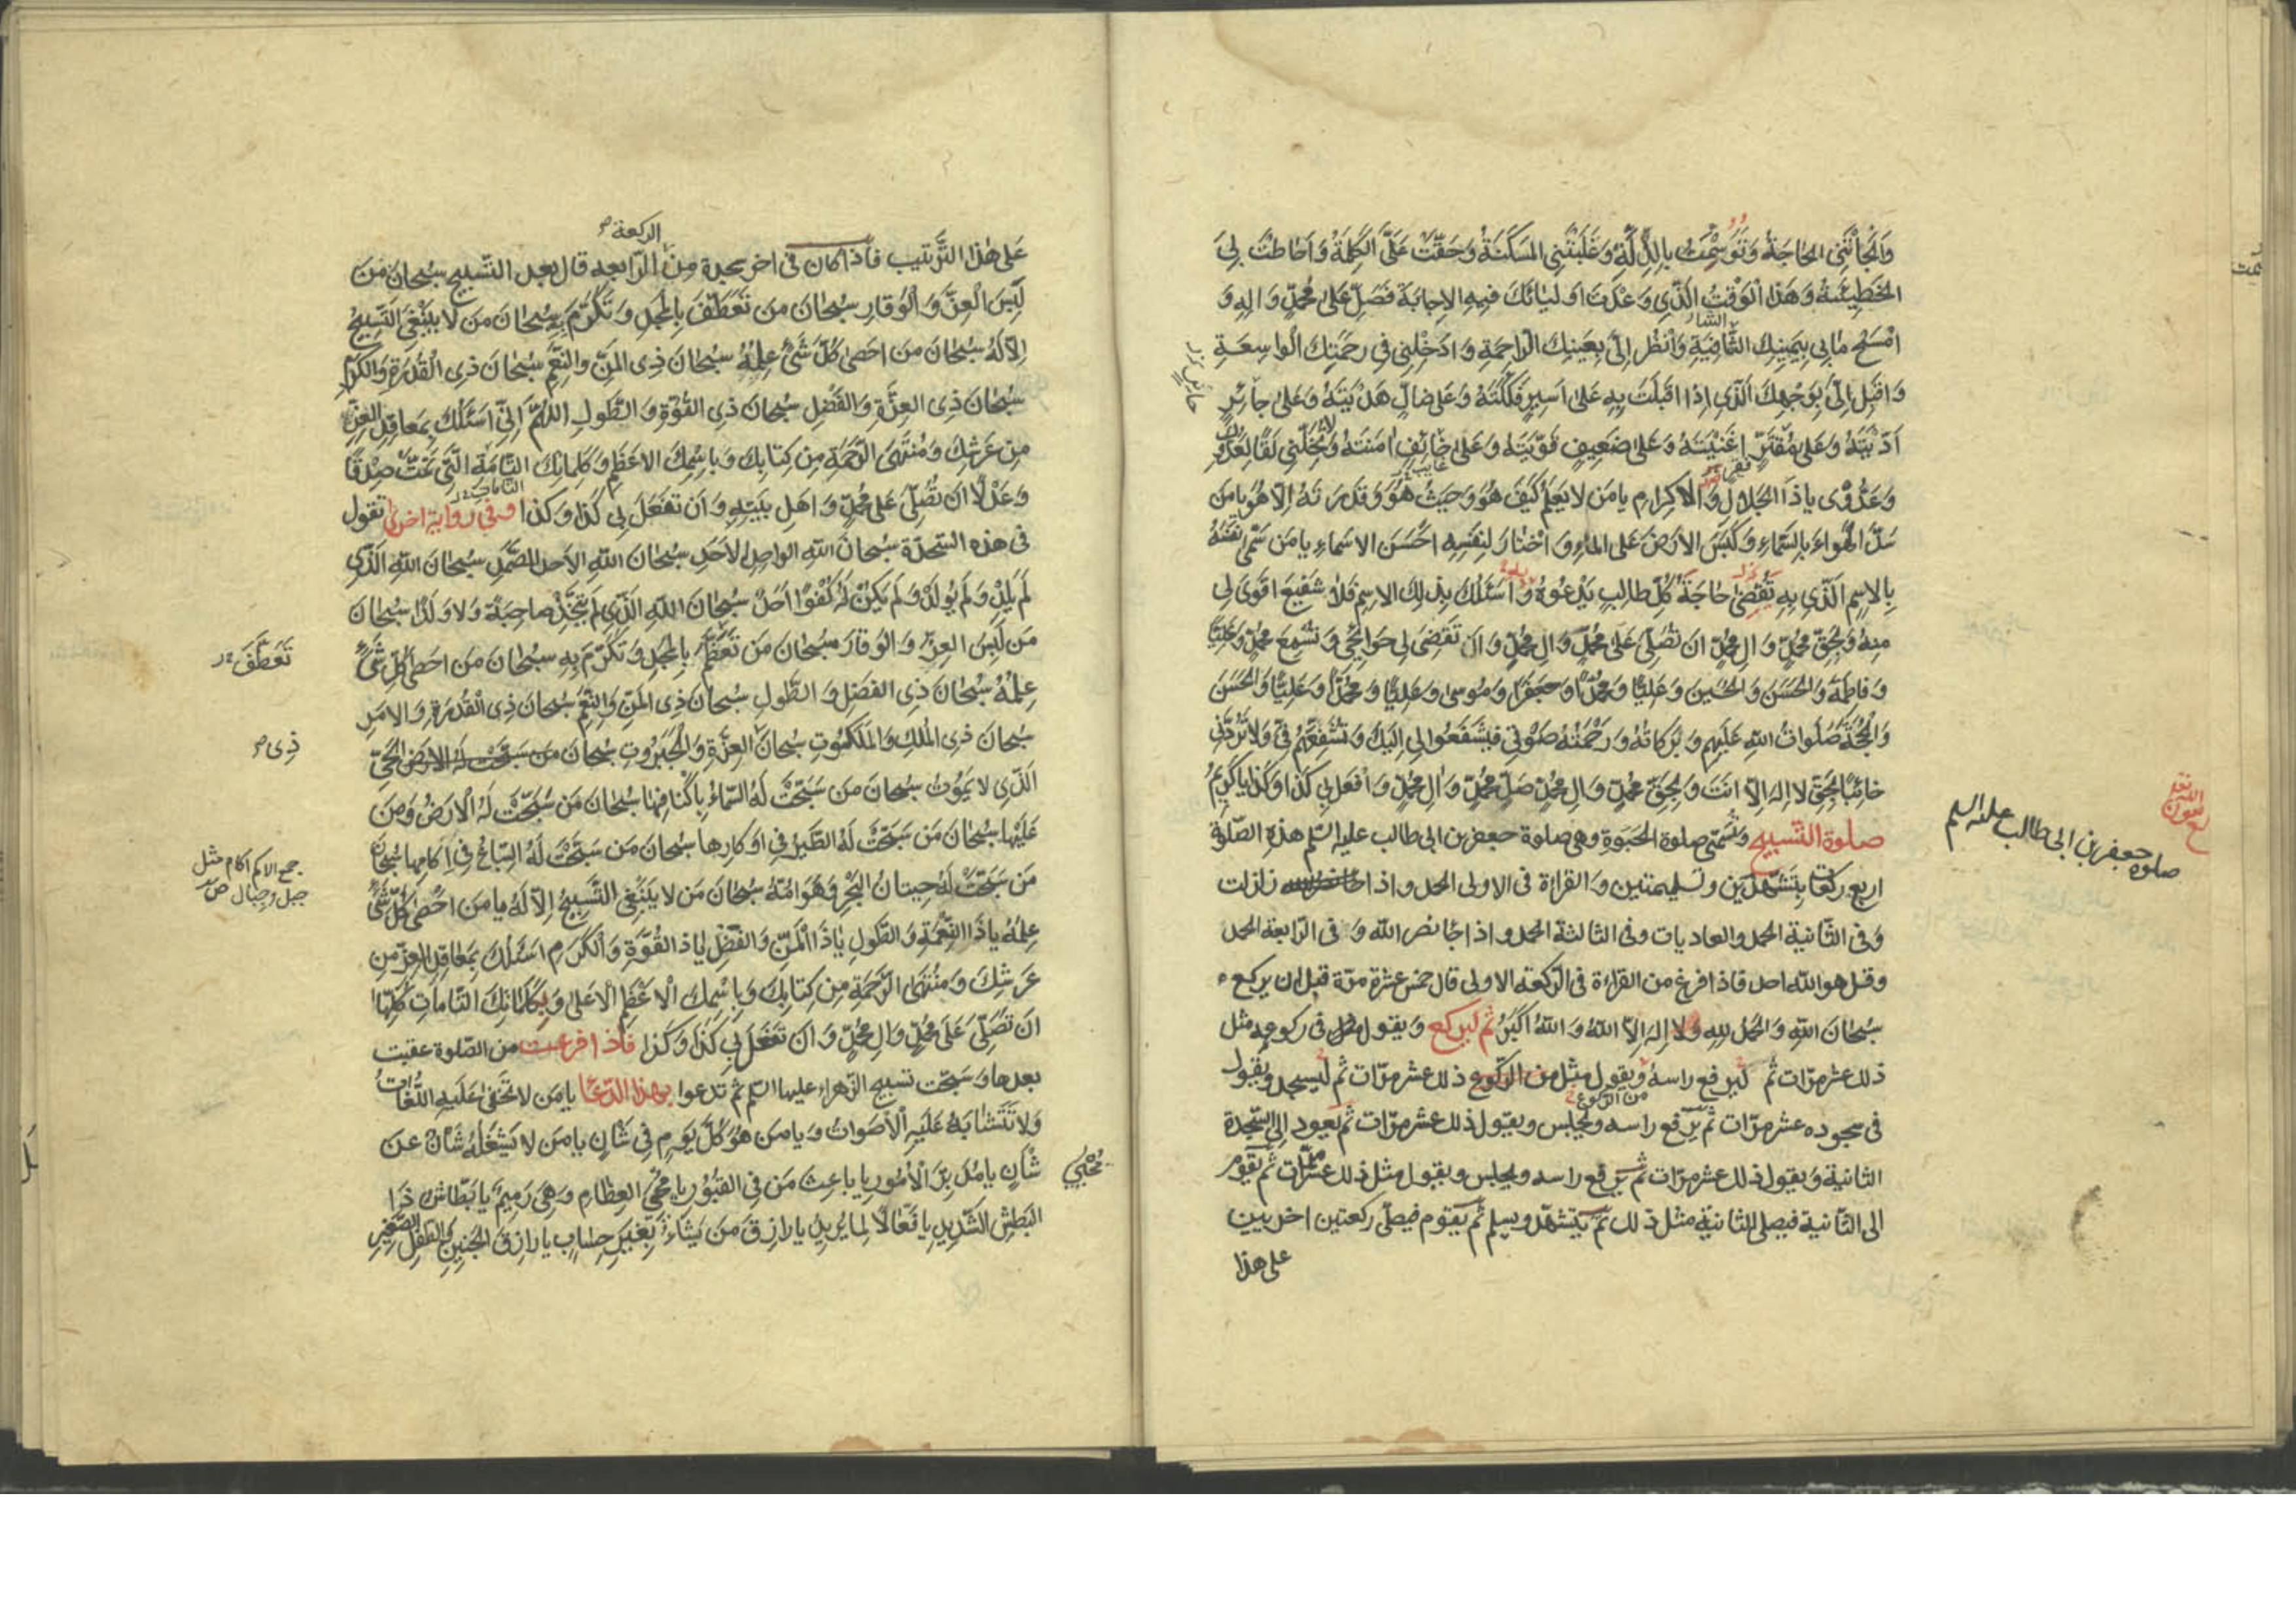 وَاَلْجَأَتْنِى الحَاجَةُ وَتَوَسَّمْتُ بِالذِّلَّةِ وَغَلَبَتْنِى المَسْكَنَةُ وَحَقَّتْ عَلَىَّ الكَلِمَةُ وَاَحَاطَتْ بِىَ
الخَطِيئَةُ وَهَذَا الْوَقْتُ الَّذِى وَعَدْتَ اَوْلِيَائَكَ فِيهِ الاِجَابَةَ فَصَلِّ عَلَى مُحَمَّدٍ وَالِهِ وَ
امْسَحْ مَا بِى بِيَمِينِكَ الشَّافِيَةِ وَانْظُرْ اِلَىَّ بِعَيْنِكَ الرَّاحِمَةِ وَادْخِلْنِى فِى رَحْمَتِكَ الْوَاسِعَةِ
وَاقْبِلْ اِلَىَّ بِوَجْهِكَ الَّذِى اِذَا اَقْبَلْتَ بِهِ عَلَى اَسِيرٍ فَكَكْتَهُ وَعَلَى ضَالٍّ هَدَيْتَهُ وَعَلَى جَائِزٍ
اَدَّيْتَهُ وَعَلَى مُقْتِرٍ اَغْنَيْتَهُ وَعَلَى ضَعِيفٍ قَوَّيْتَهُ وَعَلَى خَائِفٍ اٰمَنْتَهُ وَلَا تُخَلِّنِى لَقًا لِعَدُوِّكَ
وَعَدُوِّى يَا ذَا الْجَلَالِ وَالْاِكْرَامِ يَا مَنْ لَا يَعْلَمُ كَيْفَ هُوَ وَحَيْثُ هُوَ وَقُدْرَتَهُ اِلَّا هُوَ يَا مَنْ
سَدَّ الْهَوَاءَ بِالسَّمَاءِ وَكَبَسَ الْاَرْضَ عَلَى الْمَاءِ وَاخْتَارَ لِنَفْسِهِ اَحْسَنَ الْاَسْمَاءِ يَا مَنْ سَمَّى نَفْسَهُ
بِالْاِسْمِ الَّذِى بِهِ تُقْضَى حَاجَةُ كُلِّ طَالِبٍ يَدْعُوهُ وَاَسْئَلُكَ بِذٰلِكَ الْاِسْمِ فَلَا شَفِيعَ اَقْوَى لِى
مِنْهُ وَبِحَقِّ مُحَمَّدٍ وَالِ مُحَمَّدٍ اَنْ تُصَلِّىَ عَلَى مُحَمَّدٍ وَالِ مُحَمَّدٍ وَاَنْ تَقْضِىَ لِى حَوَائِجِى وَتُسْمِعَ مُحَمَّدًا وَعَلِيًّا
وَفَاطِمَةَ وَالْحَسَنَ وَالْحُسَيْنَ وَعَلِيًّا وَمُحَمَّدًا وَجَعْفَرًا وَمُوسَى وَعَلِيًّا وَمُحَمَّدًا وَعَلِيًّا وَالْحَسَنَ
وَالْحُجَّةَ صَلَوَاتُ اللهِ عَلَيْهِمْ وَبَرَكَاتُهُ وَرَحْمَتُهُ صَوْتِى فَيَشْفَعُوا لِى اِلَيْكَ وَتُشَفِّعَهُمْ فِىَّ وَلَا تَرُدَّنِى
خَائِبًا بِحَقِّ لَا اِلٰهَ اِلَّا اَنْتَ وَبِحَقِّ مُحَمَّدٍ وَالِ مُحَمَّدٍ صَلِّ مُحَمَّدٍ وَالِ مُحَمَّدٍ وَافْعَلْ بِى كَذَا وَكَذَا يَا كَرِيمُ
صلوة التّسبيح وتُسَمّى صلوة الحَبْوَةِ وهى صلوة جعفر بن ابى طالب عليه السّلم هذه الصّلوة
اربع ركعات بتَشَهُّدَين وتسليمتين وَالقراءة فى الاولى الحمد واذا زلزلت
وَفى الثّانية الحمد والعاديات وفى الثالثة الحمد واذا جَاءَ نصر الله وَفى الرّابعة الحمد
وقل هو الله احد فاذا فرغ من القراءة فى الرّكعة الاولى قال خمس عشرة مرّة قبل ان يركع
سُبْحَانَ اللهِ وَالْحَمْدُ لِلهِ وَلَا اِلٰهَ اِلَّا اللهُ وَاللهُ اَكْبَرُ ثم ليركع وَيقول فى ركوعه مثل
ذلك عشر مرّات ثم ليرفع راسه وَيقول مثل من الركوع ذلك عشر مرّات ثم ليسجد ويقول
من الركوع
فى سجوده عشر مرّات ثم يرفع راسه ويجلس ويقول ذلك عشر مرّات ثم يعود الى السّجدة
الثانية وَيقول ذلك عشر مرّات ثم يرفع راسه ويجلس ويقول مثل ذلك عشر مرّات ثم يقوم
الى الثّانية فيصلى الثانية مثل ذلك ثم يتشهّد ويسلم ثم يقوم فيصلّى ركعتين اخريين
على هذا
صلوة جعفر بن ابى طالب عليه السلم
الركعة
عَلى هٰذا التَّرتيب فاذا كان فى اخر سجدة مِنَ الرّابعه قال بعد التّسبيح سُبْحَانَ مَنْ
لَبِسَ الْعِزَّ وَالْوَقَارَ سُبْحَانَ مَنْ تَعَطَّفَ بِالْمَجْدِ وَتَكَرَّمَ بِهِ سُبْحَانَ مَنْ لَا يَنْبَغِى التَّسْبِيحُ
اِلَّا لَهُ سُبْحَانَ مَنْ اَحْصَى كُلَّ شَىْءٍ عِلْمُهُ سُبْحَانَ ذِى الْمَنِّ وَالنِّعَمِ سُبْحَانَ ذِى الْقُدْرَةِ وَالْكَرَمِ
سُبْحَانَ ذِى الْعِزَّةِ وَالْفَضْلِ سُبْحَانَ ذِى الْقُوَّةِ وَالطَّوْلِ اَللّٰهُمَّ اِنِّى اَسْئَلُكَ بِمَعَاقِدِ الْعِزِّ
مِنْ عَرْشِكَ وَمُنْتَهَى الرَّحْمَةِ مِنْ كِتَابِكَ وَبِاسْمِكَ الْاَعْظَمِ وَكَلِمَاتِكَ التَّامَّةِ الَّتِى تَمَّتْ صِدْقًا
وَعَدْلًا اَنْ تُصَلِّىَ عَلَى مُحَمَّدٍ وَاَهْلِ بَيْتِهِ وَاَنْ تَفْعَلَ بِى كَذَا وَكَذَا وفى رواية اخرى تقول
فى هذه السّجدة سُبْحَانَ اللهِ الْوَاحِدِ الْاَحَدِ سُبْحَانَ اللهِ الْاَحَدِ الصَّمَدِ سُبْحَانَ اللهِ الَّذِى
لَمْ يَلِدْ وَلَمْ يُولَدْ وَلَمْ يَكُنْ لَهُ كُفُوًا اَحَدٌ سُبْحَانَ اللهِ الَّذِى لَمْ يَتَّخِذْ صَاحِبَةً وَلَا وَلَدًا سُبْحَانَ
مَنْ لَبِسَ الْعِزَّ وَالْوَقَارَ سُبْحَانَ مَنْ تَعَظَّمَ بِالْمَجْدِ وَتَكَرَّمَ بِهِ سُبْحَانَ مَنْ اَحْصَى كُلَّ شَىْءٍ
تَعَطَّفَ
عِلْمُهُ سُبْحَانَ ذِى الْفَضْلِ وَالطَّوْلِ سُبْحَانَ ذِى الْمَنِّ وَالنِّعَمِ سُبْحَانَ ذِى الْقُدْرَةِ وَالْاَمْرِ
سُبْحَانَ ذِى الْمُلْكِ وَالْمَلَكُوتِ سُبْحَانَ الْعِزَّةِ وَالْجَبَرُوتِ سُبْحَانَ مَنْ سَبَّحَتْ لَهُ الْاَرْضُ الْحَىِّ
ذِى
الَّذِى لَا يَمُوتُ سُبْحَانَ مَنْ سَبَّحَتْ لَهُ السَّمَاءُ بِاَكْنَافِهَا سُبْحَانَ مَنْ سَبَّحَتْ لَهُ الْاَرْضُ وَمَنْ
عَلَيْهَا سُبْحَانَ مَنْ سَبَّحَتْ لَهُ الطَّيْرُ فِى اَوْكَارِهَا سُبْحَانَ مَنْ سَبَّحَتْ لَهُ السِّبَاعُ فِى اٰكَامِهَا سُبْحَانَ
جمع الاكم اكام مثل
جبل وجبال
مَنْ سَبَّحَتْ لَهُ حِيتَانُ الْبَحْرِ وَهَوَامُّهُ سُبْحَانَ مَنْ لَا يَنْبَغِى التَّسْبِيحُ اِلَّا لَهُ يَا مَنْ اَحْصَى كُلَّ شَىْءٍ
عِلْمُهُ يَا ذَا النِّعْمَةِ وَالطَّوْلِ يَا ذَا الْمَنِّ وَالْفَضْلِ يَا ذَا الْقُوَّةِ وَالْكَرَمِ اَسْئَلُكَ بِمَعَاقِدِ الْعِزِّ مِنْ
عَرْشِكَ وَمُنْتَهَى الرَّحْمَةِ مِنْ كِتَابِكَ وَبِاسْمِكَ الْاَعْظَمِ الْاَعْلَى وَبِكَلِمَاتِكَ التَّامَّاتِ كُلِّهَا
اَنْ تُصَلِّىَ عَلَى مُحَمَّدٍ وَالِ مُحَمَّدٍ وَاَنْ تَفْعَلَ بِى كَذَا وَكَذَا فاذا فرغت من الصّلوة عقبت
بعدها وَسَبّحت تسبيح الزّهراء عليها السّلم ثم تدعوا بهذا الدّعا يَا مَنْ لَا تَخْفَى عَلَيْهِ اللُّغَاتُ
وَلَا تَتَشَابَهُ عَلَيْهِ الْاَصْوَاتُ وَيَا مَنْ هُوَ كُلَّ يَوْمٍ فِى شَأْنٍ يَا مَنْ لَا يَشْغَلُهُ شَأْنٌ عَنْ
شَأْنٍ يَا مُدَبِّرَ الْاُمُورِ يَا بَاعِثَ مَنْ فِى الْقُبُورِ يَا مُحْيِىَ الْعِظَامِ وَهِىَ رَمِيمٌ يَا بَطَّاشُ ذَا
الْبَطْشِ الشَّدِيدِ يَا فَعَّالًا لِمَا يُرِيدُ يَا رَازِقَ مَنْ يَشَاءُ بِغَيْرِ حِسَابٍ يَا رَازِقَ الْجَنِينِ وَالطِّفْلِ الصَّغِيرِ